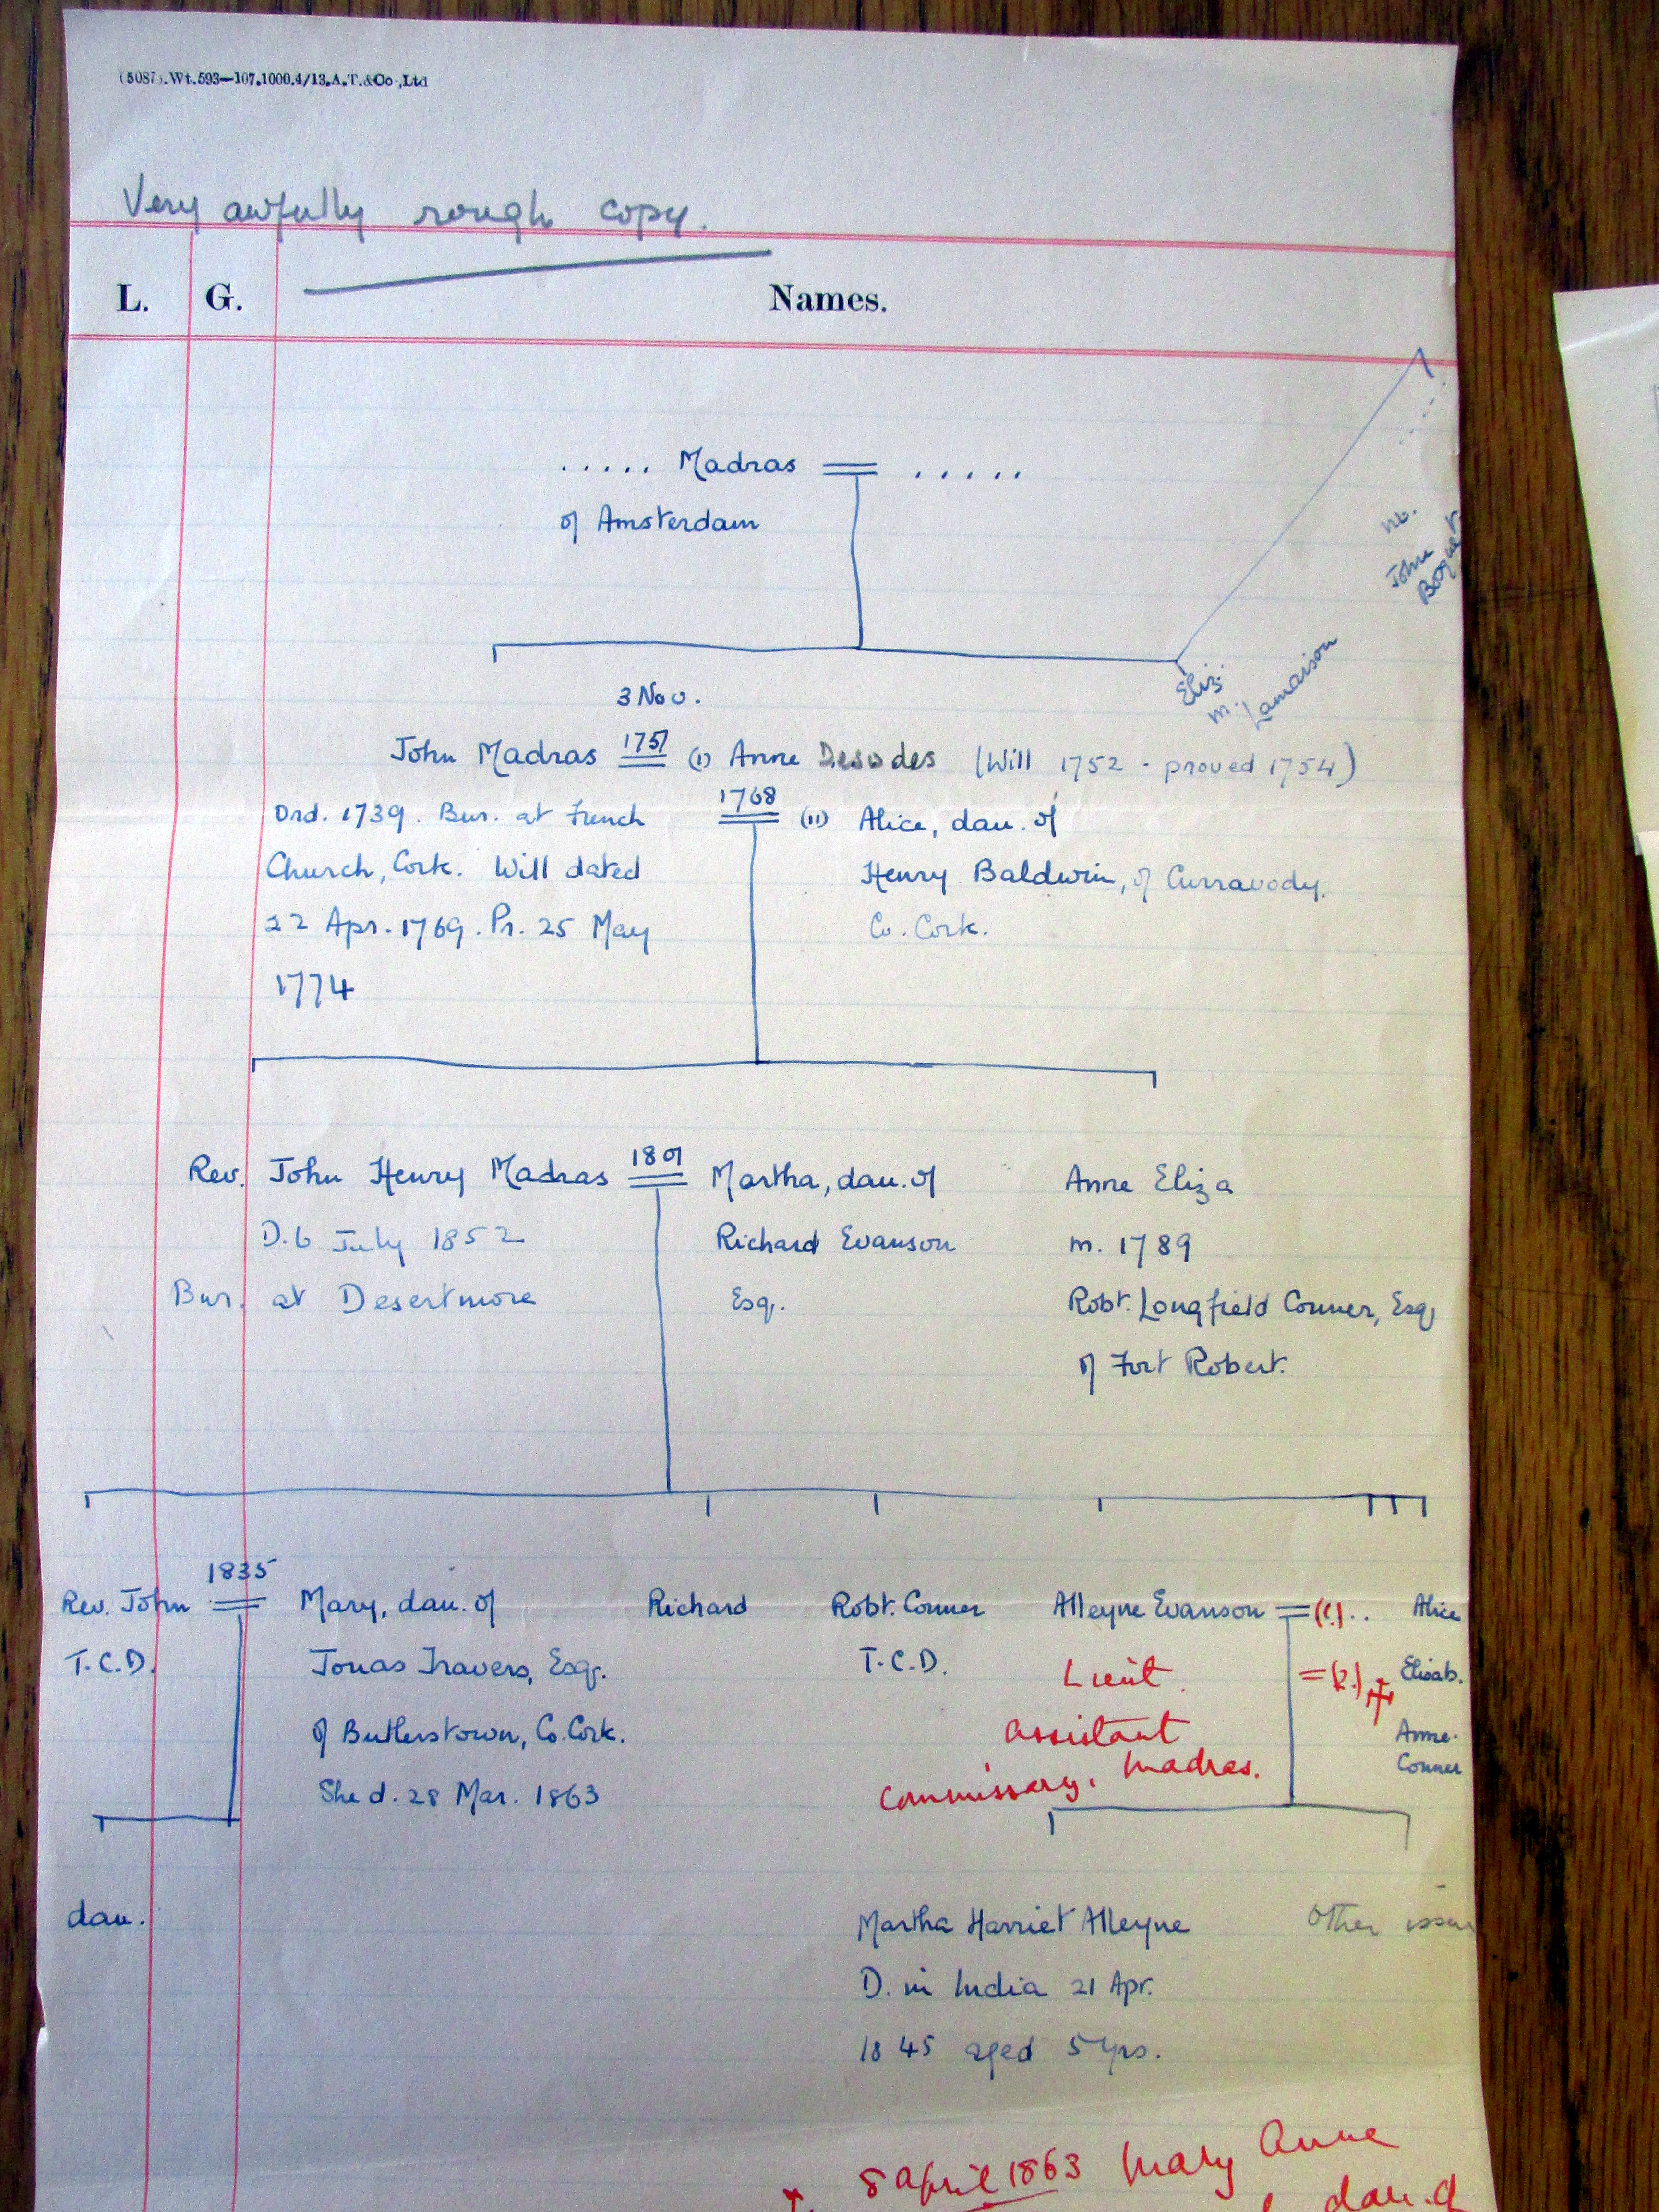 (5087).Wt.593—107.1000.4/13.A.T.&Co.,Ltd
Very awfully rough copy.
L. G. Names.
..... Madras = .....
of Amsterdam
John
Eliz.
m. Lamaison
3 Nov.
John Madras 1751 (I) Anne Desodes (Will 1752 - proved 1754)
Ord. 1739. Bur. at French 1768 (II) Alice, dau. of
Church, Cork. Will dated Henry Baldwin, of Curravody.
22 Apr. 1769. Pr. 25 May Co. Cork.
1774
Rev. John Henry Madras 1801 Martha, dau. of Anne Eliza
D. 6 July 1852 Richard Evanson m. 1789
Bur. at Desertmore Esq. Robt. Longfield Conner, Esq
of Fort Robert.
1835
Rev. John = Mary, dau. of Richard Robt. Conner Alleyne Evanson = (1.).. Alice
T.C.D. Jonas Travers, Esq. T.C.D. Lieut. = (2.) Elisab.
of Butlerstown, Co. Cork. assistant Anne.
She d. 28 Mar. 1863 Commissary, Madras. Conner
dau. Martha Harriet Alleyne Other
D. in India 21 Apr.
1845 aged 5 yrs.
8 april 1863 Mary Anne
dau. of